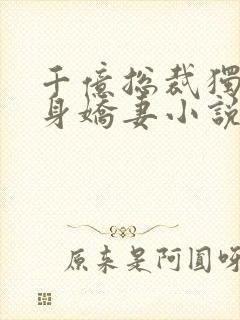 千億总裁獨
身嬌妻小說
原来是阿圓呀